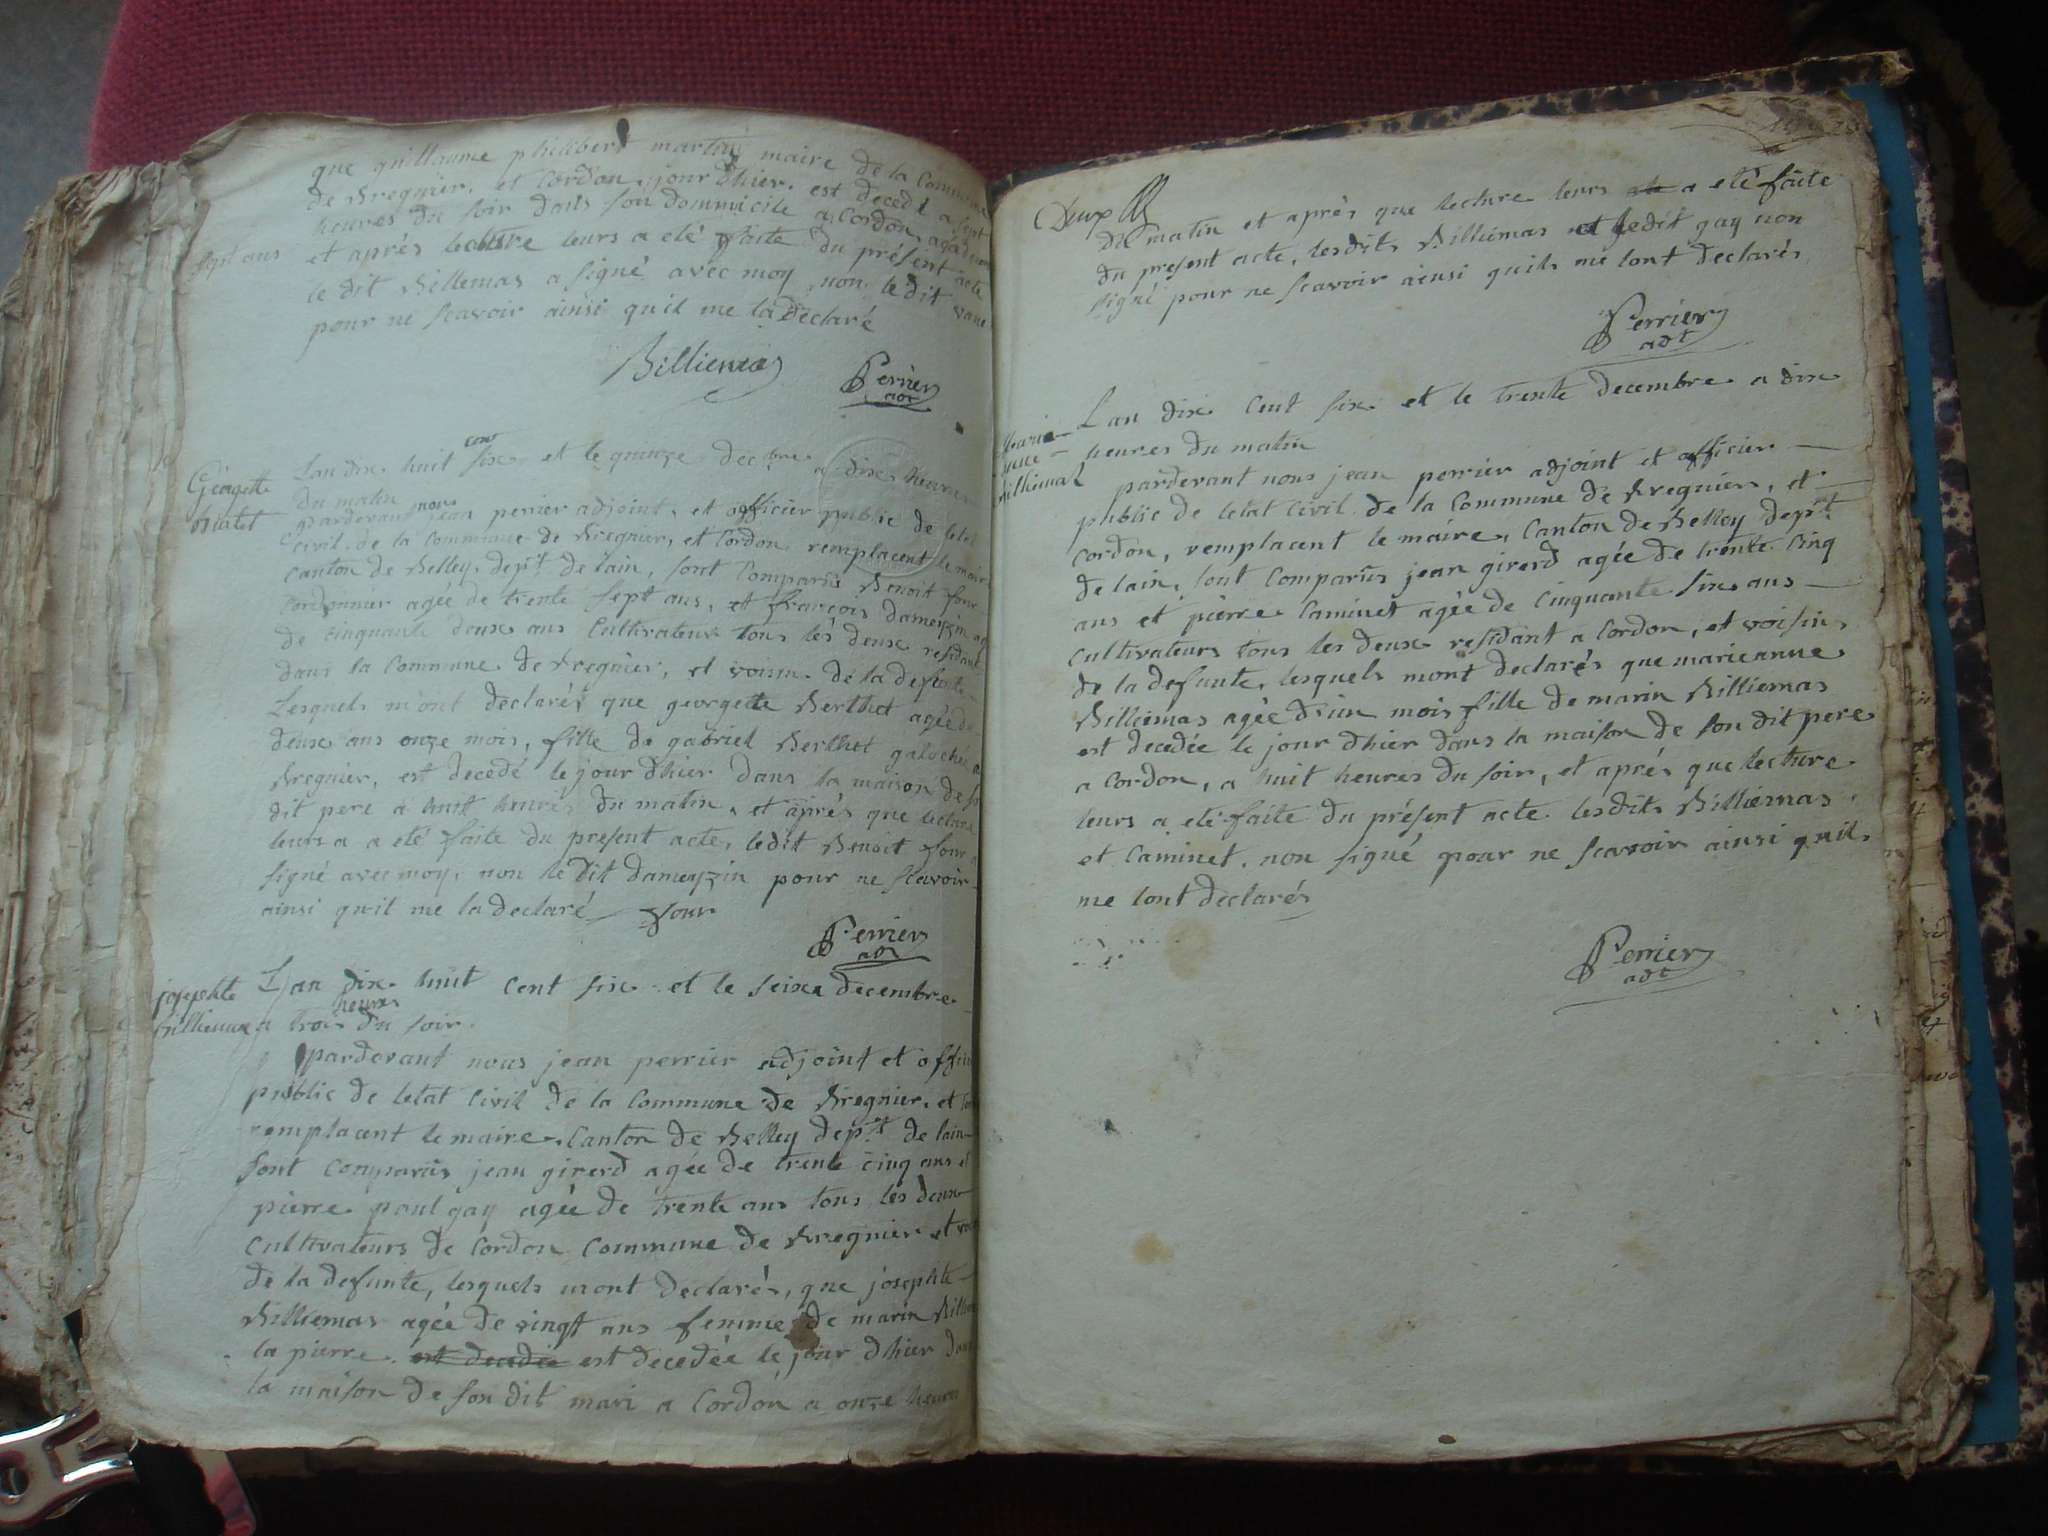 que guillaume philibert martin maire de la Commune
de Bregnier. et Cordon, jour dhier. est decedé a sept
heures du soir dans son dommicile a Cordon, agé de
sept ans et aprés lecture leurs a eté faite du présent acte
le dit Billiemas a signé avec moy non le dit
pour ne scavoir ainsi quil me la declaré
Billiemas Perrier
adt
Georgette
Lan dix huit cent six et le quinze decbre a dix heures
du matin
pardevant nous jean perrier adjoint, et officier public de letat
civil. de la Commune de Bregnier, et Cordon remplacent le maire
Canton de Belley, dept de lain, sont Comparüs Benoit four
Cordonnier agée de trente sept ans, et françois dameyzin
de cinquante deux ans Cultivateurs tous les deux residant
dans la Commune de Bregnier, et voisin de la defunte
Lesquels m'ont declarés que georgette Berthet agée de
deux ans onze mois, fille de gabriel Berthet galoché a
Bregnier, est decedé le jour dhier dans la maison de
dit pere a huit heures du matin, et aprés que lecture
leurs a a eté faite du present acte, ledit Benoit four a
signé avec moy, non le dit dameyzin pour ne scavoir
ainsi quil me la declaré four
Perrier
adt
josephte
billiemas
Lan dix huit cent six et le seize decembre
a trois heures du soir.
pardevant nous jean perrier adjoint et officier
public de letat civil de la Commune de Bregnier, et
remplacent le maire, Canton de Belley dept de lain
sont comparüs jean girerd agée de trente cinq ans et
pierre paul gay agée de trente ans tous les deux
Cultivateurs de Cordon Commune de Bregnier et
de la defunte, lesquels mont declarés, que josephte
Billiemas agée de vingt ans femme de marin
la pierre est decedée est decedée le jour dhier dans
la maison de son dit mari a Cordon a onze heures
Deux
du matin et aprés que lecture leurs a eté faite
du present acte, lesdits Billiemas et ledit gay non
signé pour ne scavoir ainsi quils me lont declarés
Perrier
adt
Marie
billiemas
Lan dix Cent six et le trente decembre a dix
heures du matin
pardevant nous jean perrier adjoint et officier
public de letat Civil de la Commune de Bregnier, et
Cordon, remplacent le maire, Canton de Belley dept
de lain, sont Comparüs jean girerd agée de trente cinq
ans et pierre Caminet agée de cinquante six ans
Cultivateurs tous les deux residant a Cordon, et voisins
de la defunte, lesquels mont declarés que marieanne
Billiemas agée d'un mois fille de marin Billiemas
est decedée le jour dhier dans la maison de son dit pere
a Cordon, a huit heures du soir, et aprés que lecture
leurs a eté faite du présent acte lesdits Billiemas
et Caminet, non signé pour ne scavoir ainsi quils
me lont declarés
Perrier
adt